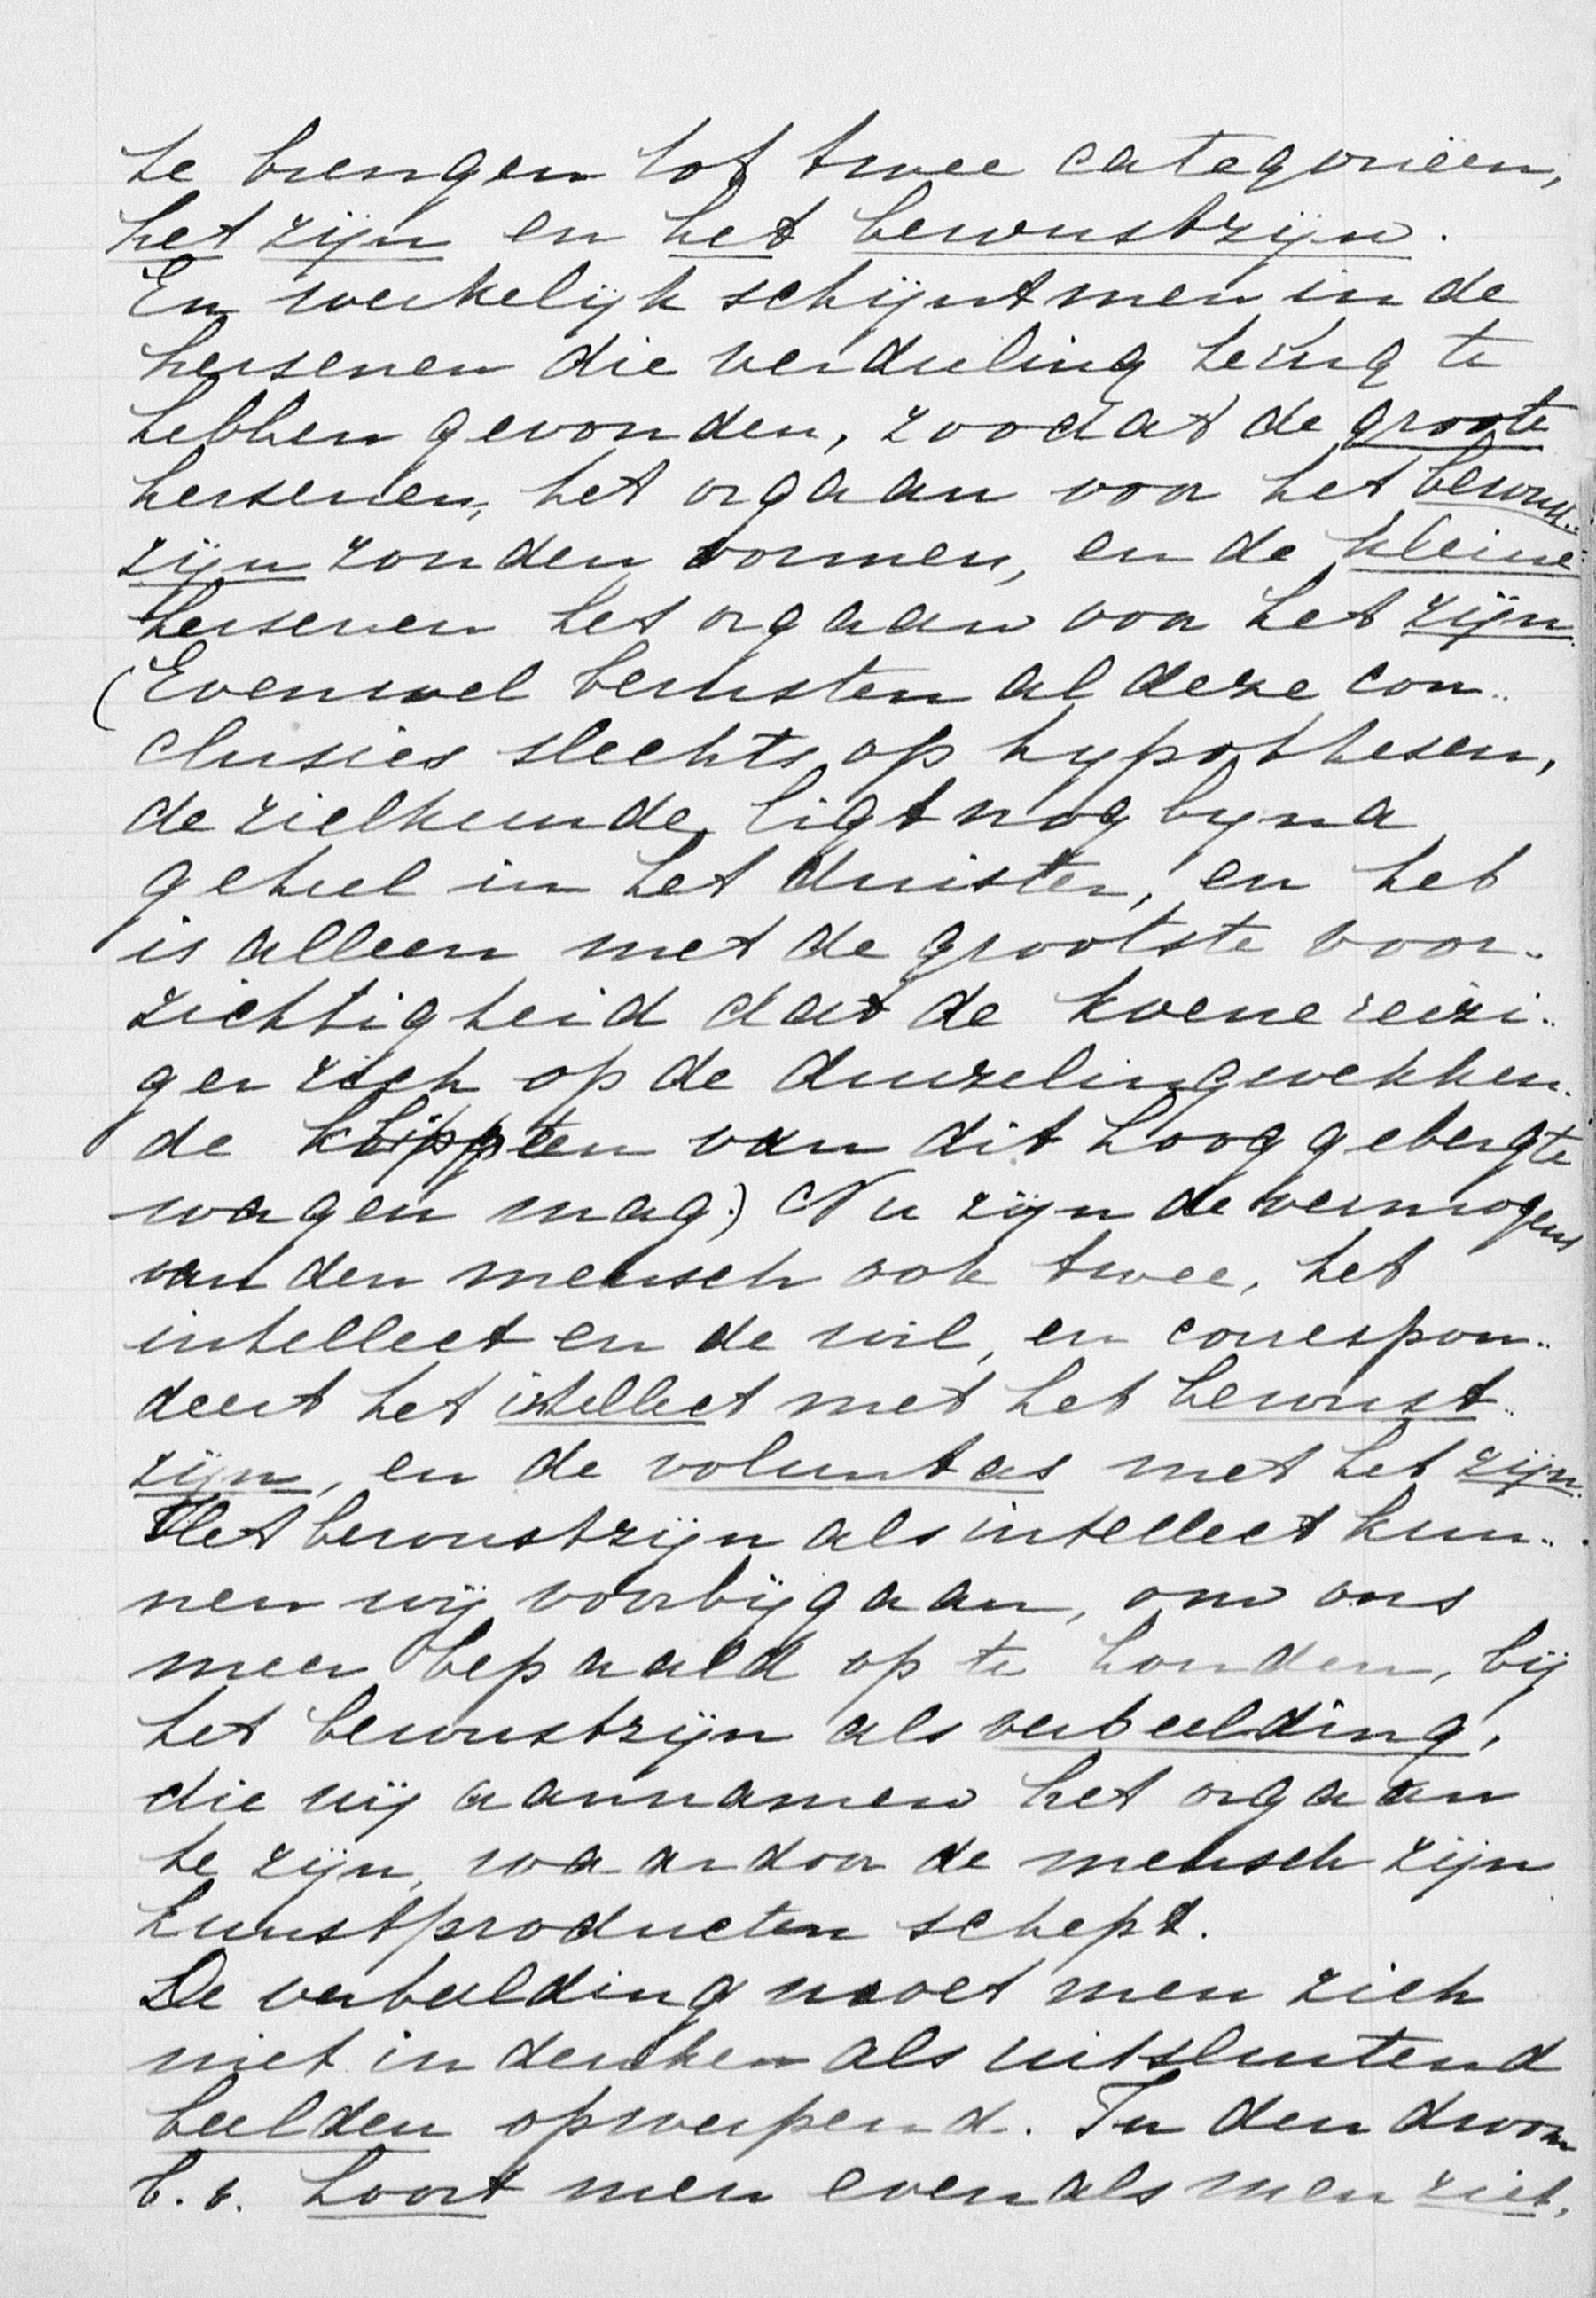 te brengen tot twee categorieën,
het zijn en het bewustzijn.
En werkelijk schijnt men in de
hersenen die verdeeling terug te
hebben gevonden, zoodat de groote
hersenen, het orgaan voor het bewust..
zijn zouden vormen, en de kleine
hersenen het orgaan voor het zijn.
(Evenwel berusten al deze con..
clusies slechts op hypothesen,
de zielkunde, ligt nog byna
geheel in het duister, en het
is alleen met de grootste voor..
zichtigheid dat de koene reizi..
ger zich op de duizelingwekken..
de klippen van dit hooggebergte
wagen mag.) Nu zijn de vermogens
van den mensch ook twee, het
intellect en de wil, en correspon..
deert het intellect met het bewust..
zijn, en de voluntas met het zijn.
Het bewustzijn als intellect kun..
nen wij voorbijgaan, om ons
meer bepaald op te houden, bij
het bewustzijn als verbeelding,
die wij aannamen het orgaan
te zijn, waardoor de mensch zijn
kunstproducten schept.
De verbeelding moet men zich
niet indenken als uitsluitend
beelden opwerpend. In den droom
b.v. hoort men evenals men ziet,